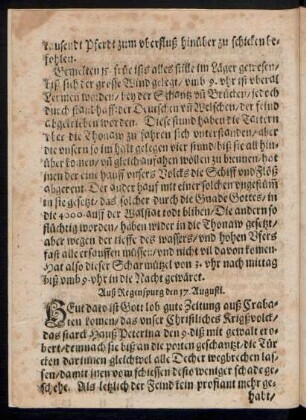 tausendt Pferdt zum vberfluß hinüber zu schicken be-
fohlen.
Gemelten 15. früe ists alles stille im Läger gewesen/
biß sich der grosse Wind gelegt / vmb 9. vhr ist vberal
Lermen worden / bey der Schantz vñ Brücken / jedoch
durch standhafft der Teutschen vñ Welschen / der feind
abgetrieben worden. Diese stund haben die Tattern
vber die Thonaw zu fahren sich vnterstanden / aber
die vnsern so im halt gelegen vier stund biß sie all hin-
über komen / vñ gleich anfahen wöllen zu brennen / hat
jnen der eine hauff vnsers Volcks die Schiff vnd Flöß
abgerent. Der ander hauf mit einer solchen vngestüm
in sie gesetzt / das solcher durch die Gnade Gottes / in
die 4000. auff der Walstat todt bliben / Die andern so
flüchtig worden / haben wider in die Thonaw gesetzt /
aber wegen der tieffe des wassers / vnd hohen Vfers
fast alle ersauffen müssen / vnd nicht vil davon komen
Hat also dieser Scharmützel von 3. vhr nach mittag
biß vmb 9. vhr in die Nacht gewäret.
Auß Regenspurg den 17. Augusti.
HEut dato ist Gott lob gute Zeitung auß Craba-
ten komen / das vnser Christliches Krigßvolck /
das starck Hauß Peterina den 9. diß mit gewalt ero-
bert / demnach sie biß an die porten geschantzt / die Tür-
cken darinnen gleichwol alle Decher wegbrechen las-
sen / damit jnen vom schiessen desto weniger schade ge-
schehe. Als letzlich der Feind kein profiant mehr ge-
habt /